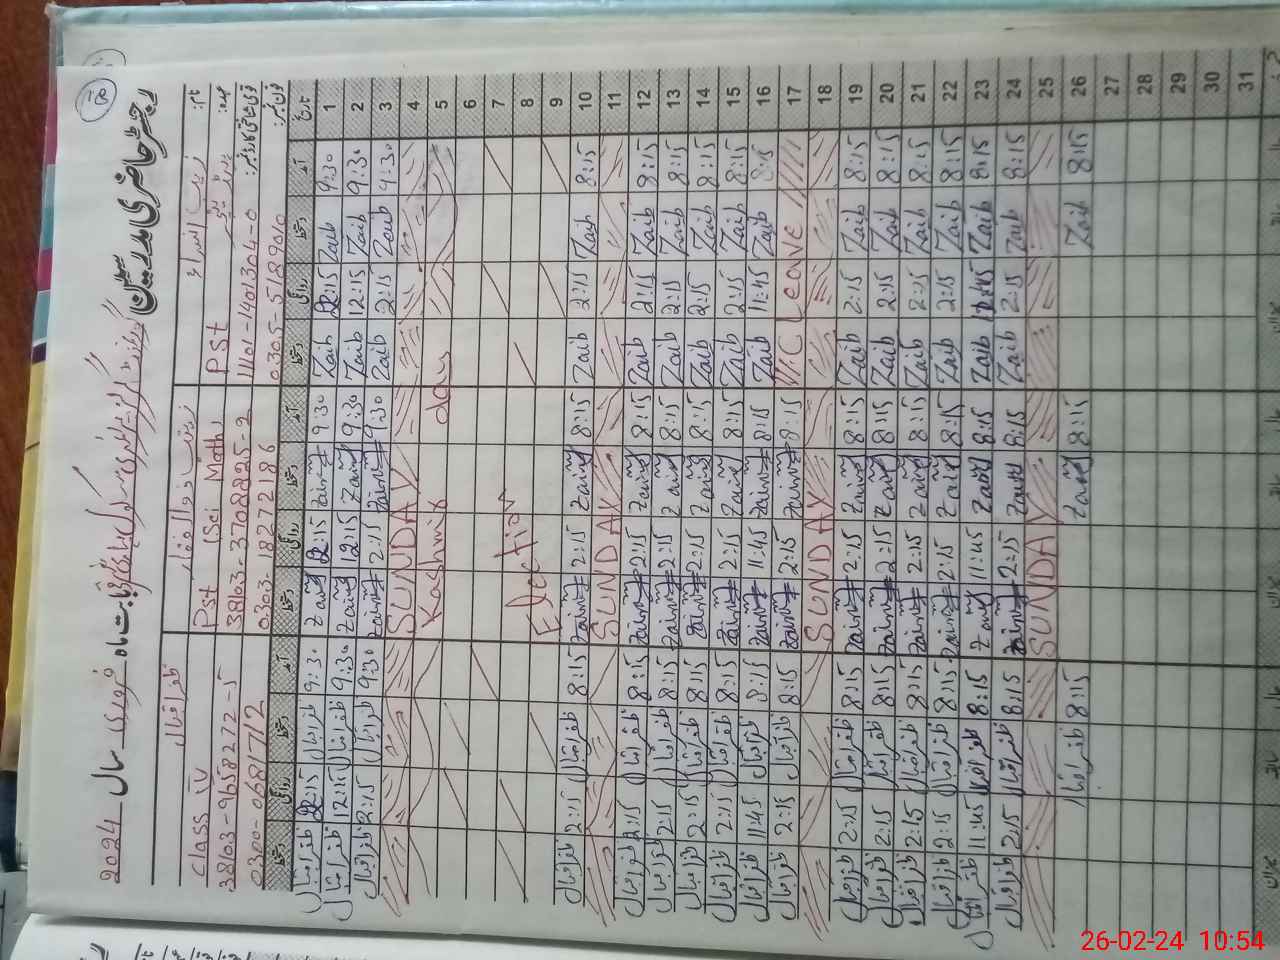 رجسٹر حاضری مدرسین
بابت ماہ فروری سال 2024
نام: زیب النساء
عہدہ: Pst
11101-1401304-0
0305-5189010
زینب ذوالفقار
Pst (Sci Math)
38103-3708225-2
0303-1827218 6
ظفر اقبال
Class IV
38103-9658272-5
0300-0681712
تاریخ آمد دستخط روانگی دستخط آمد دستخط روانگی دستخط آمد دستخط روانگی دستخط
1 9:30 Zaib 12:15 Zaib 9:30 Zainab 12:15 Zainab 9:30 ظفر اقبال 12:15 ظفر اقبال
2 9:30 Zaib 12:15 Zaib 9:30 Zainab 12:15 Zainab 9:30 ظفر اقبال 12:15 ظفر اقبال
3 9:30 Zaib 2:15 Zaib 9:30 Zainab 2:15 Zainab 9:30 ظفر اقبال 2:15 ظفر اقبال
4 SUNDAY
5 Kashmir day
6
7
8 Election
9
10 8:15 Zaib 2:15 Zaib 8:15 Zainab 2:15 Zainab 8:15 ظفر اقبال 2:15 ظفر اقبال
11 SUNDAY
12 8:15 Zaib 2:15 Zaib 8:15 Zainab 2:15 Zainab 8:15 ظفر اقبال 2:15 ظفر اقبال
13 8:15 Zaib 2:15 Zaib 8:15 Zainab 2:15 Zainab 8:15 ظفر اقبال 2:15 ظفر اقبال
14 8:15 Zaib 2:15 Zaib 8:15 Zainab 2:15 Zainab 8:15 ظفر اقبال 2:15 ظفر اقبال
15 8:15 Zaib 2:15 Zaib 8:15 Zainab 2:15 Zainab 8:15 ظفر اقبال 2:15 ظفر اقبال
16 8:15 Zaib 11:45 Zaib 8:15 Zainab 11:45 Zainab 8:15 ظفر اقبال 11:45 ظفر اقبال
17 Leave 8:15 Zainab 2:15 Zainab 8:15 ظفر اقبال 2:15 ظفر اقبال
18 SUNDAY
19 8:15 Zaib 2:15 Zaib 8:15 Zainab 2:15 Zainab 8:15 ظفر اقبال 2:15 ظفر اقبال
20 8:15 Zaib 2:15 Zaib 8:15 Zainab 2:15 Zainab 8:15 ظفر اقبال 2:15 ظفر اقبال
21 8:15 Zaib 2:15 Zaib 8:15 Zainab 2:15 Zainab 8:15 ظفر اقبال 2:15 ظفر اقبال
22 8:15 Zaib 2:15 Zaib 8:15 Zainab 2:15 Zainab 8:15 ظفر اقبال 2:15 ظفر اقبال
23 8:15 Zaib 11:45 Zaib 8:15 Zainab 11:45 Zainab 8:15 ظفر اقبال 11:45 ظفر اقبال
24 8:15 Zaib 2:15 Zaib 8:15 Zainab 2:15 Zainab 8:15 ظفر اقبال 2:15 ظفر اقبال
25 SUNDAY
26 8:15 Zaib 8:15 Zainab 8:15 ظفر اقبال
27
28
29
30
31
26-02-24 10:54